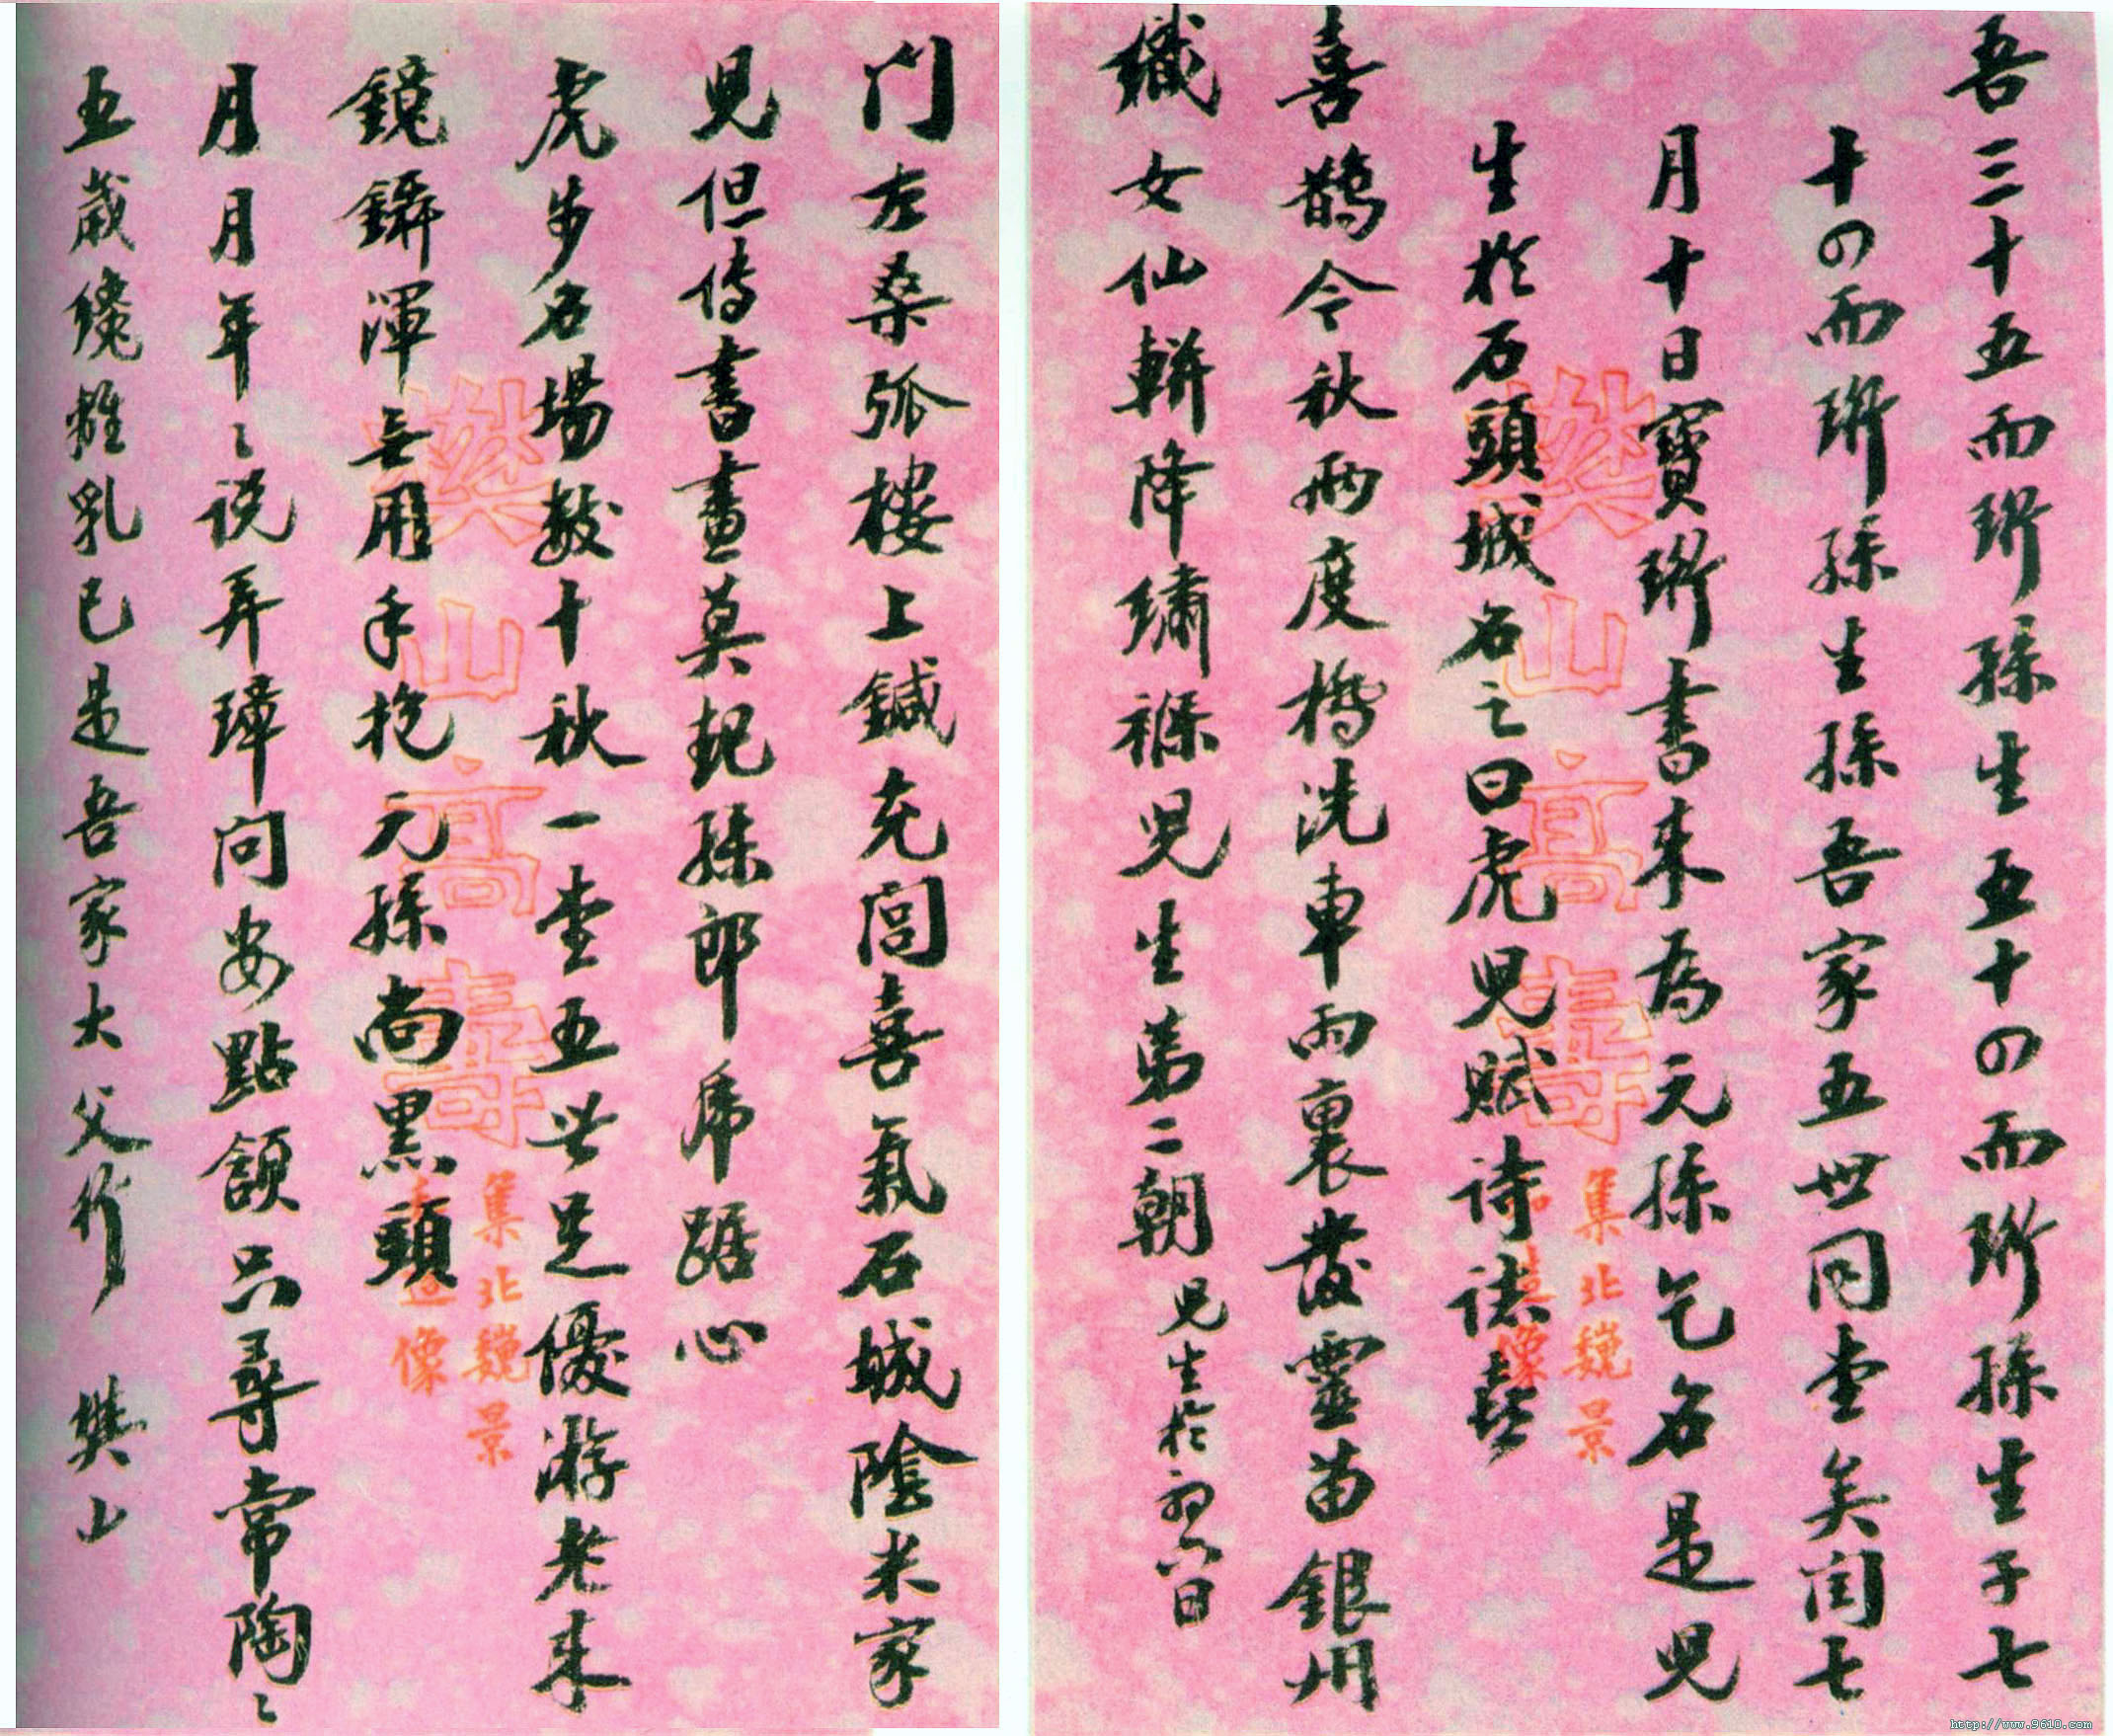 吾三十五而珩孫生五十四而珩孫生子七
十四而珩孫生孫吾家五世同堂矣閏七
月十日寶珩書來為元孫乞名是兒
生於石頭城名之曰虎兒賦詩誌喜
喜鵲令秋兩度橋洗車雨裏發靈苗銀州
織女仙軿降繡褓兒生第二朝
兒生於初八日
門左桑弧樓上鍼充閭喜氣石城陰米家
兒但傳書畫莫起孫郎虎踞心
虎步名場數十秋一堂五世足優游老來
鏡鑷渾無用手抱元孫尚黑頭
月月年〻說弄璋問安點頷只尋常陶〻
五歲纔離乳已是吾家大父行 樊山
樊山高壽
集北魏景
造像
樊山高壽
集北魏景
造像
http://www.9610.com